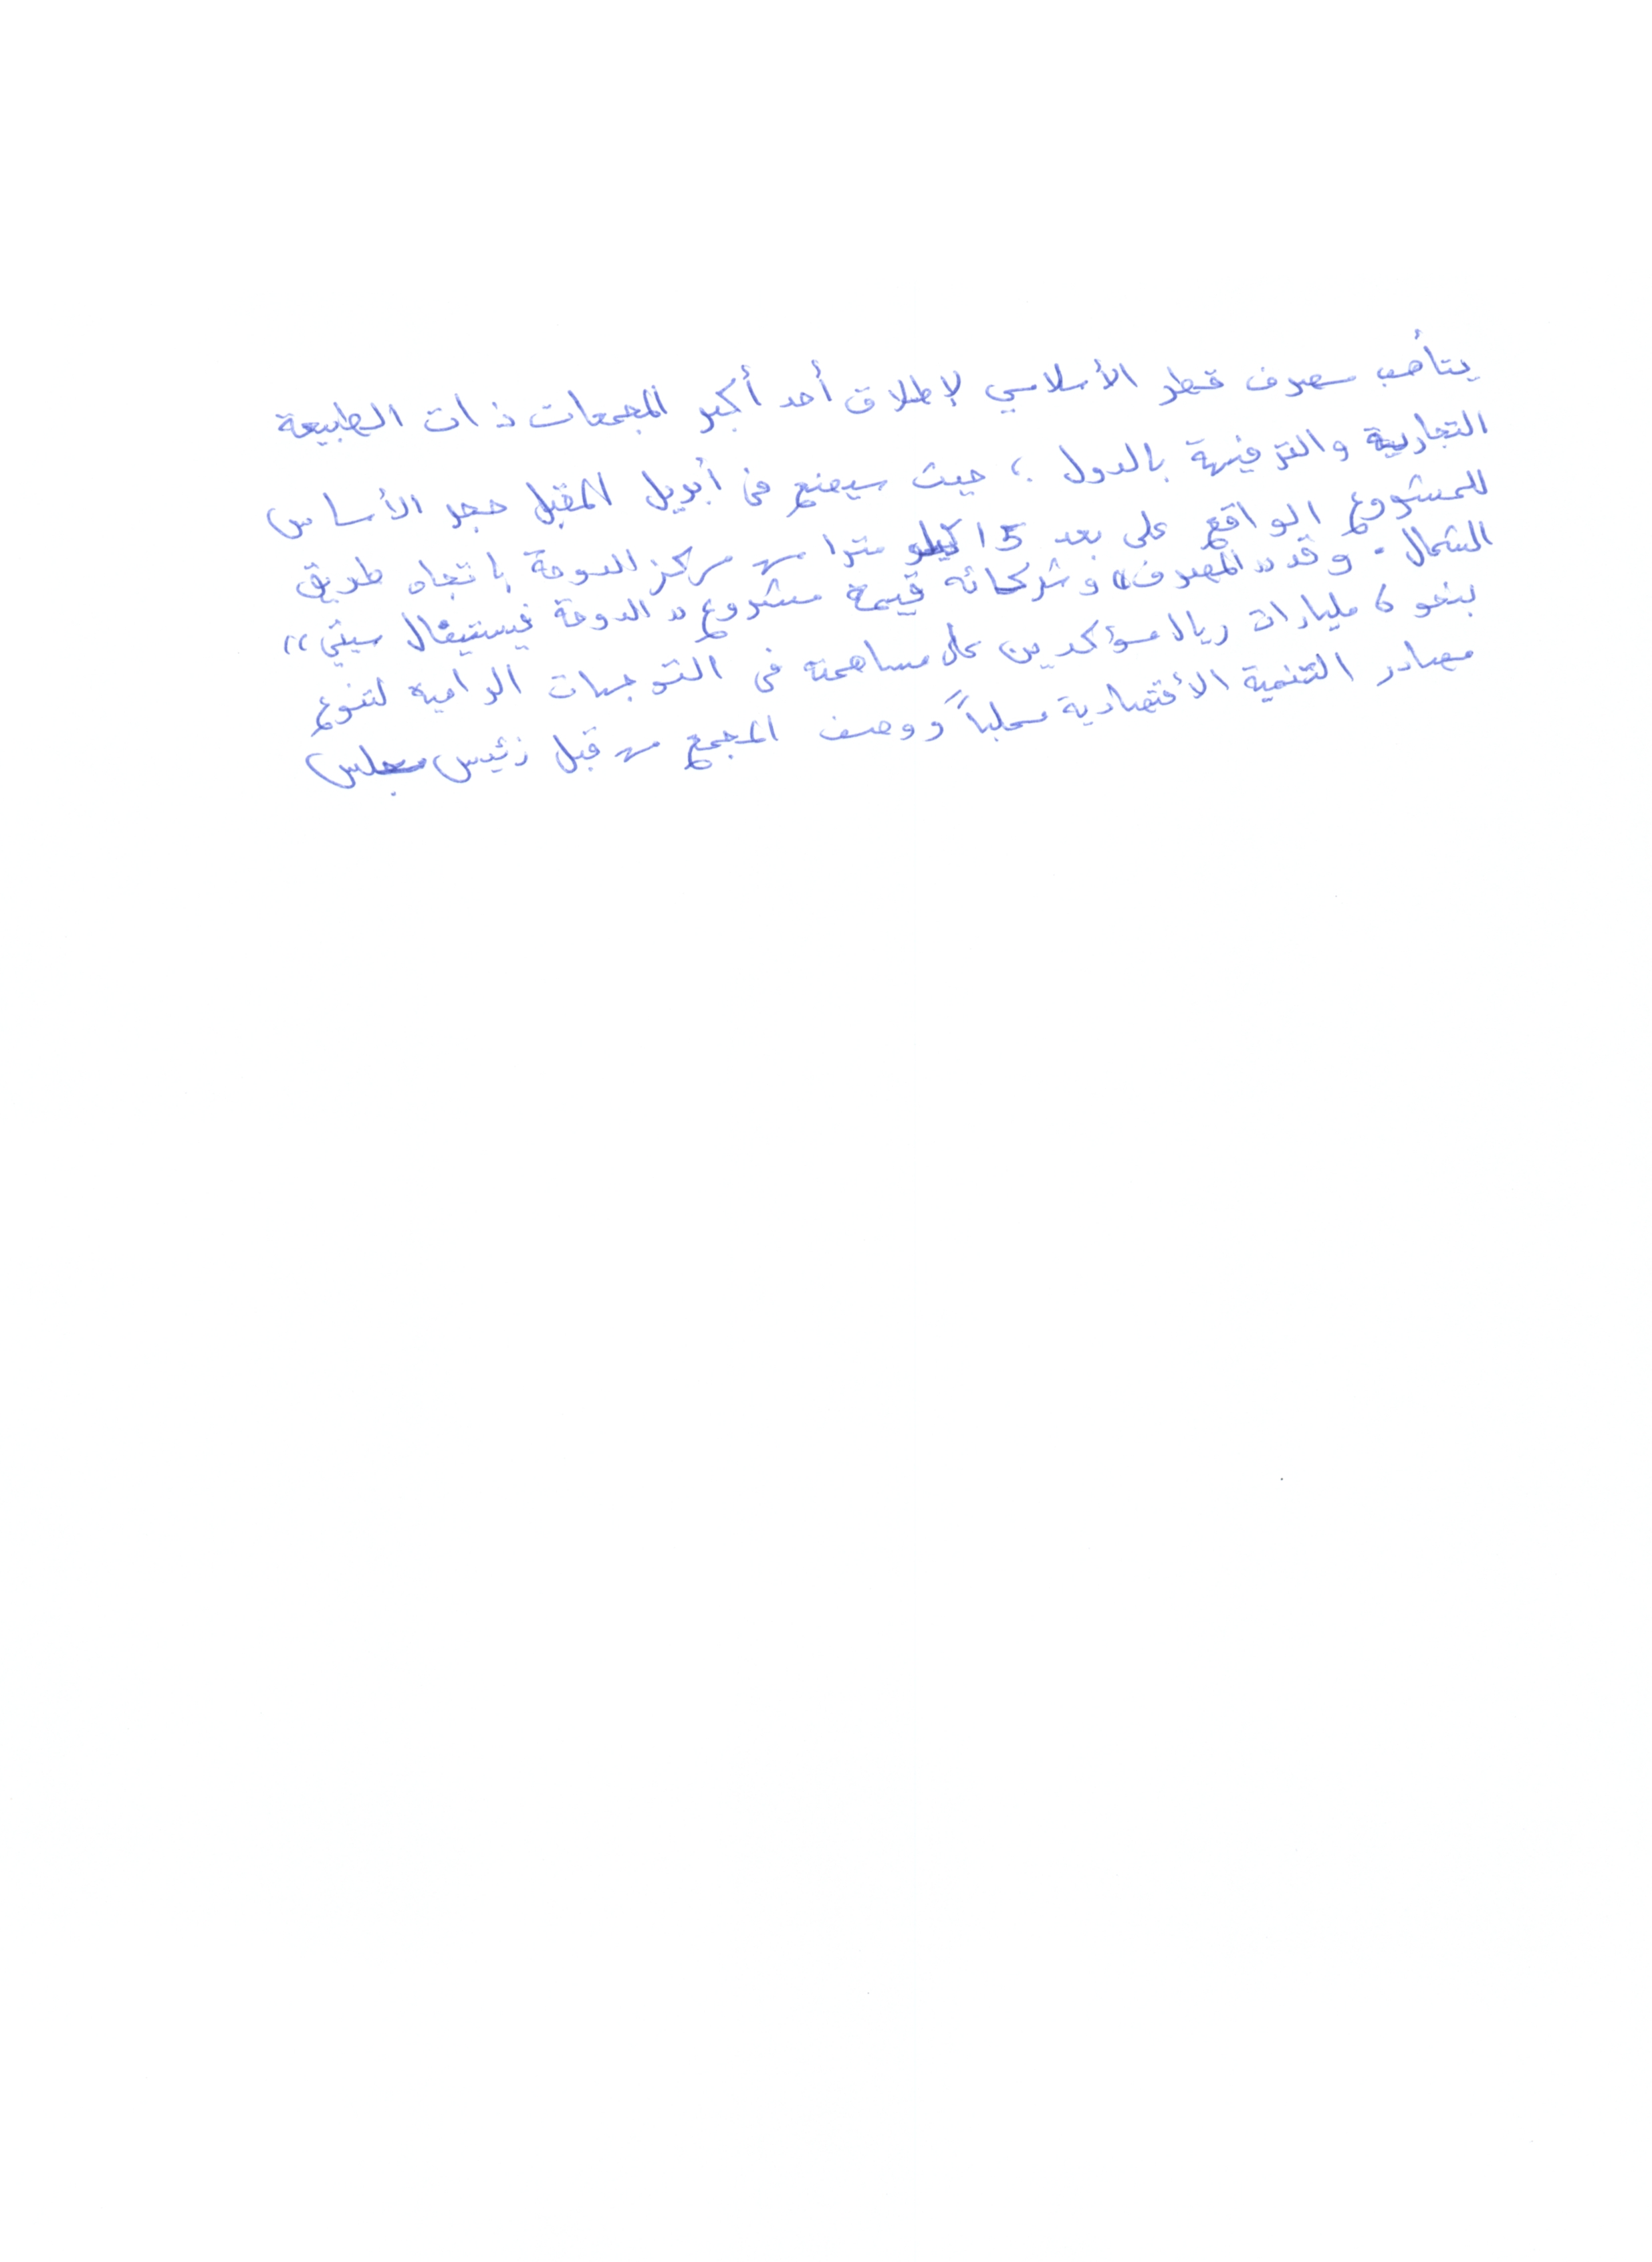 يتأهب مصرف قطر الأسلامي لإطلاق أحد أكبر المجمعات ذات الطبيعة
التجارية والترفيهة بالدول ؛ حيث سيضع فى أبريل المقبل حجر الأساس
للمشروع الواقع على بعد 15 كيلو مترا من مركز الدوحة باتجاه طريق
الشمال . وقد "المصرف" وشركائه قيمة مشروع "الدوحة فيستيفال سيتي"
بنحو 6 مليارات ريال مؤكدين على مساهمته فى التوجهات الرامية لتنوع
مصادر التنمية الأقتصادية محلياً ووصف المجمع من قبل رئيس مجلس